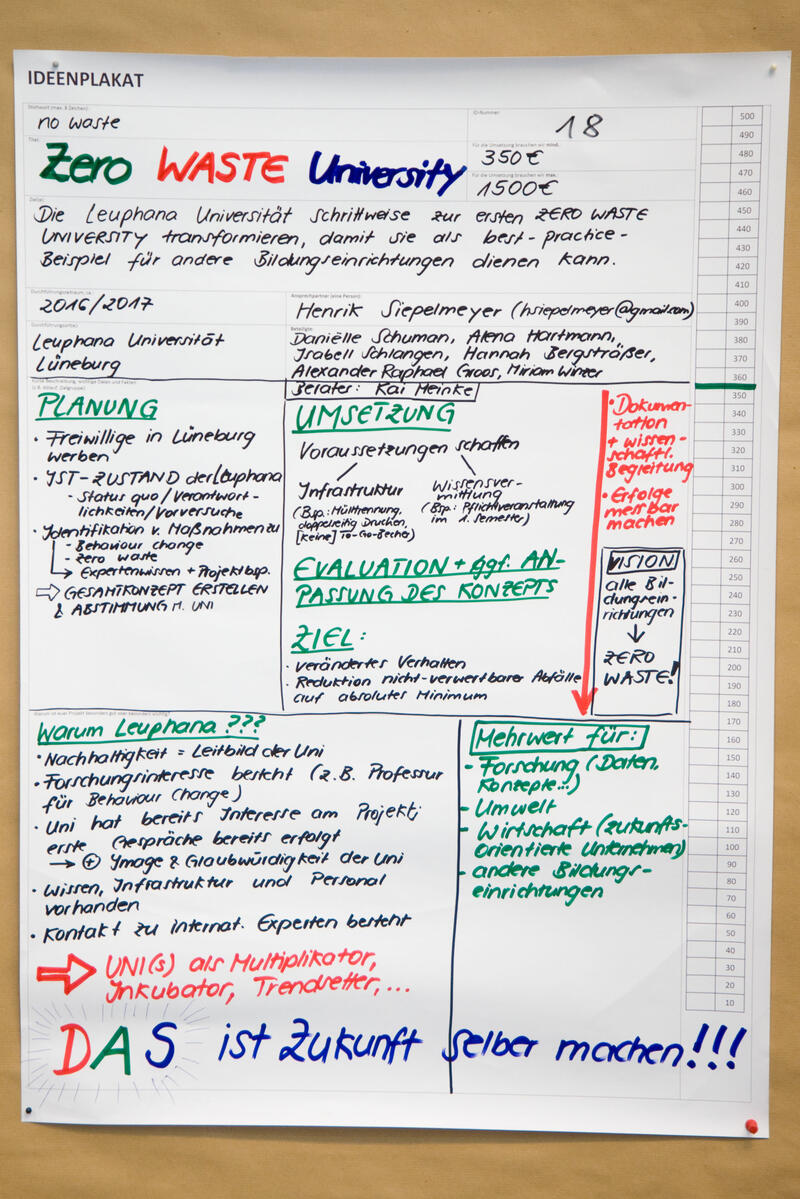 IDEENPLAKAT
Stichwort (max. 8 Zeichen):
no waste
ID-Nummer:
18
Titel:
Zero WASTE University
Für die Umsetzung brauchen wir mind.
350€
Für die Umsetzung brauchen wir max.
1500€
Die Leuphana Universität schrittweise zur ersten ZERO WASTE
UNIVERSITY transformieren, damit sie als best-practice-
Beispiel für andere Bildungseinrichtungen dienen kann.
Durchführungszeitraum, ca.:
2016/2017
Ansprechpartner (eine Person):
Henrik Siepelmeyer (hsiepelmeyer@gmail.com)
Durchführungsort(e):
Leuphana Universität
Lüneburg
Beteiligte:
Daniëlle Schuman, Alena Hartmann,
Isabell Schlangen, Hannah Bergsträßer,
Alexander Raphael Groos, Miriam Winzer
Berater: Kai Heinke
Kurze Beschreibung, wichtige Daten und Fakten:
PLANUNG
· Freiwillige in Lüneburg
werben
· IST-ZUSTAND der Leuphana
- Status quo/Verantwort-
lichkeiten/Vorversuche
· Identifikation v. Maßnahmen zu
- Behaviour change
- zero waste
→ Expertenwissen + Projektbsp.
⇨ GESAMTKONZEPT ERSTELLEN
& ABSTIMMUNG M. UNI
UMSETZUNG
Voraussetzungen schaffen
Infrastruktur
(Bsp.: Mülltrennung,
doppelseitig Drucken,
[keine] To-Go-Becher)
Wissensver-
mittlung
(Bsp.: Pflichtveranstaltung
im 1. Semester)
EVALUATION + ggf. AN-
PASSUNG DES KONZEPTS
ZIEL:
· verändertes Verhalten
· Reduktion nicht-verwertbarer Abfälle
auf absolutes Minimum
· Dokumen-
tation
+ wissen-
schaftl.
Begleitung
· Erfolge
messbar
machen
VISION
alle Bil-
dungsein-
richtungen
↓
ZERO
WASTE!
Warum Leuphana ???
· Nachhaltigkeit = Leitbild der Uni
· Forschungsinteresse besteht (z.B. Professur
für Behaviour Change)
· Uni hat bereits Interesse am Projekt;
erste Gespräche bereits erfolgt
→ ⊕ Image & Glaubwürdigkeit der Uni
· Wissen, Infrastruktur und Personal
vorhanden
· Kontakt zu internat. Experten besteht
⇨ UNI(s) als Multiplikator,
Inkubator, Trendsetter,...
Mehrwert für:
- Forschung (Daten,
Konzepte...)
- Umwelt
- Wirtschaft (zukunfts-
orientierte Unternehmen)
- andere Bildungs-
einrichtungen
DAS ist Zukunft selber machen!!!
500
490
480
470
460
450
440
430
420
410
400
390
380
370
360
350
340
330
320
310
300
290
280
270
260
250
240
230
220
210
200
190
180
170
160
150
140
130
120
110
100
90
80
70
60
50
40
30
20
10